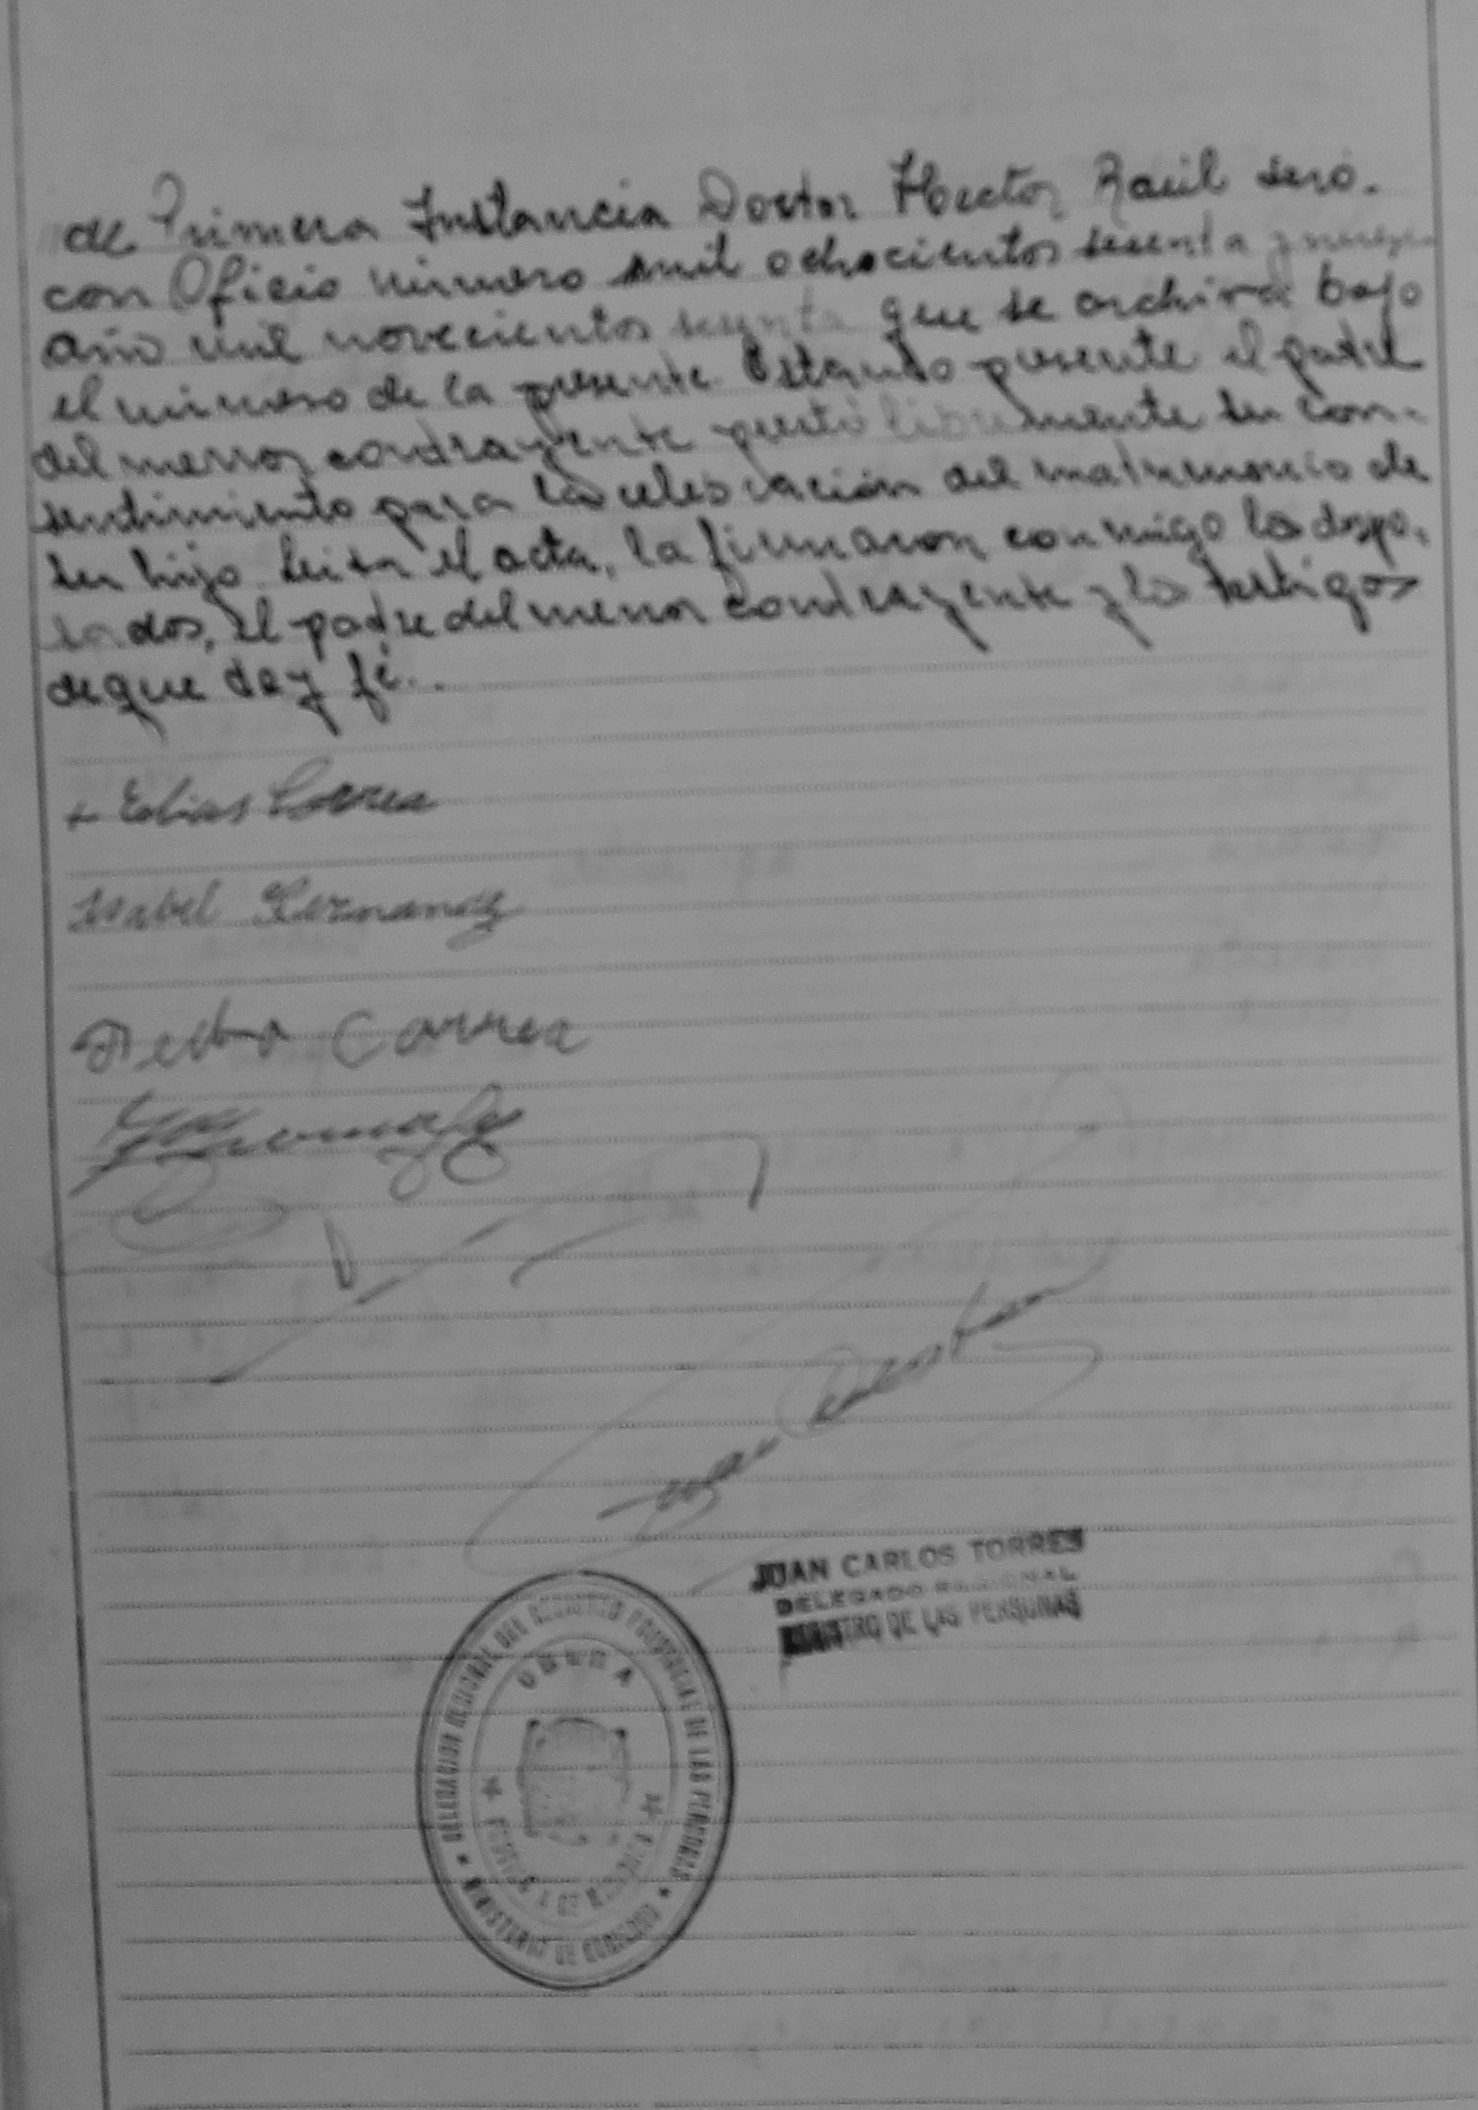 de Primera Instancia Doctor Hector Raúl
con Oficio número mil ochocientos sesenta y nueve
año mil novecientos sesenta que se archiva bajo
el número de la presente. Estando presente el padre
del menor contrayente prestó libremente su con-
sentimiento para la celebración del matrimonio de
su hijo. Leída el acta, la firmaron conmigo los despo-
sados, el padre del menor contrayente y los testigos
de que doy fé..
Elias Correa
Isabel Hernandez
Pedro Correa
JUAN CARLOS TORRES
DELEGADO REGIONAL
REGISTRO DE LAS PERSONAS
DELEGACION REGIONAL DEL REGISTRO PROVINCIAL DE LAS PERSONAS
OBERA
MINISTERIO DE GOBIERNO